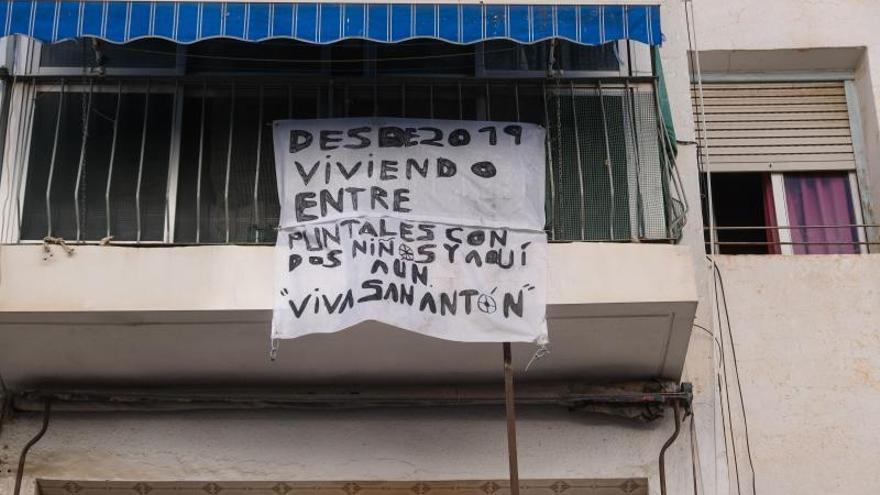 DESDE 2019
VIVIENDO
ENTRE
PUNTALES CON
DOS NIÑOS Y AQUÍ
AUN
"VIVA SAN ANTÓN"